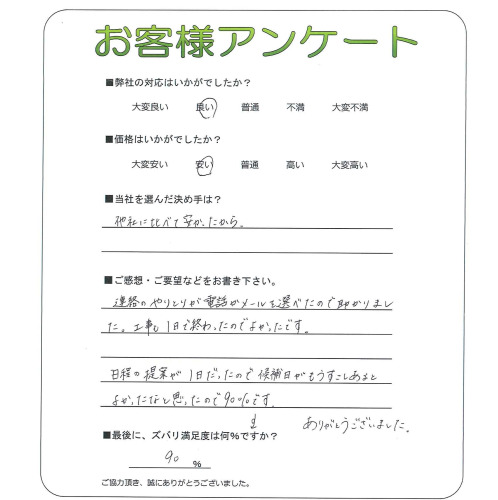 お客様アンケート
■弊社の対応はいかがでしたか？
大変良い 良い 普通 不満 大変不満
■価格はいかがでしたか？
大変安い 安い 普通 高い 大変高い
■当社を選んだ決め手は？
他社に比べて安かったから。
■ご感想・ご要望などをお書き下さい。
連絡のやりとりが電話かメールを選べたので助かりまし
た。工事も1日で終わったのでよかったです。
日程の提案が1日だったので候補日がもうすこしあると
よかったなと思ったので90%です。
ありがとうございました。
■最後に、ズバリ満足度は何%ですか？
90 %
ご協力頂き、誠にありがとうございました。